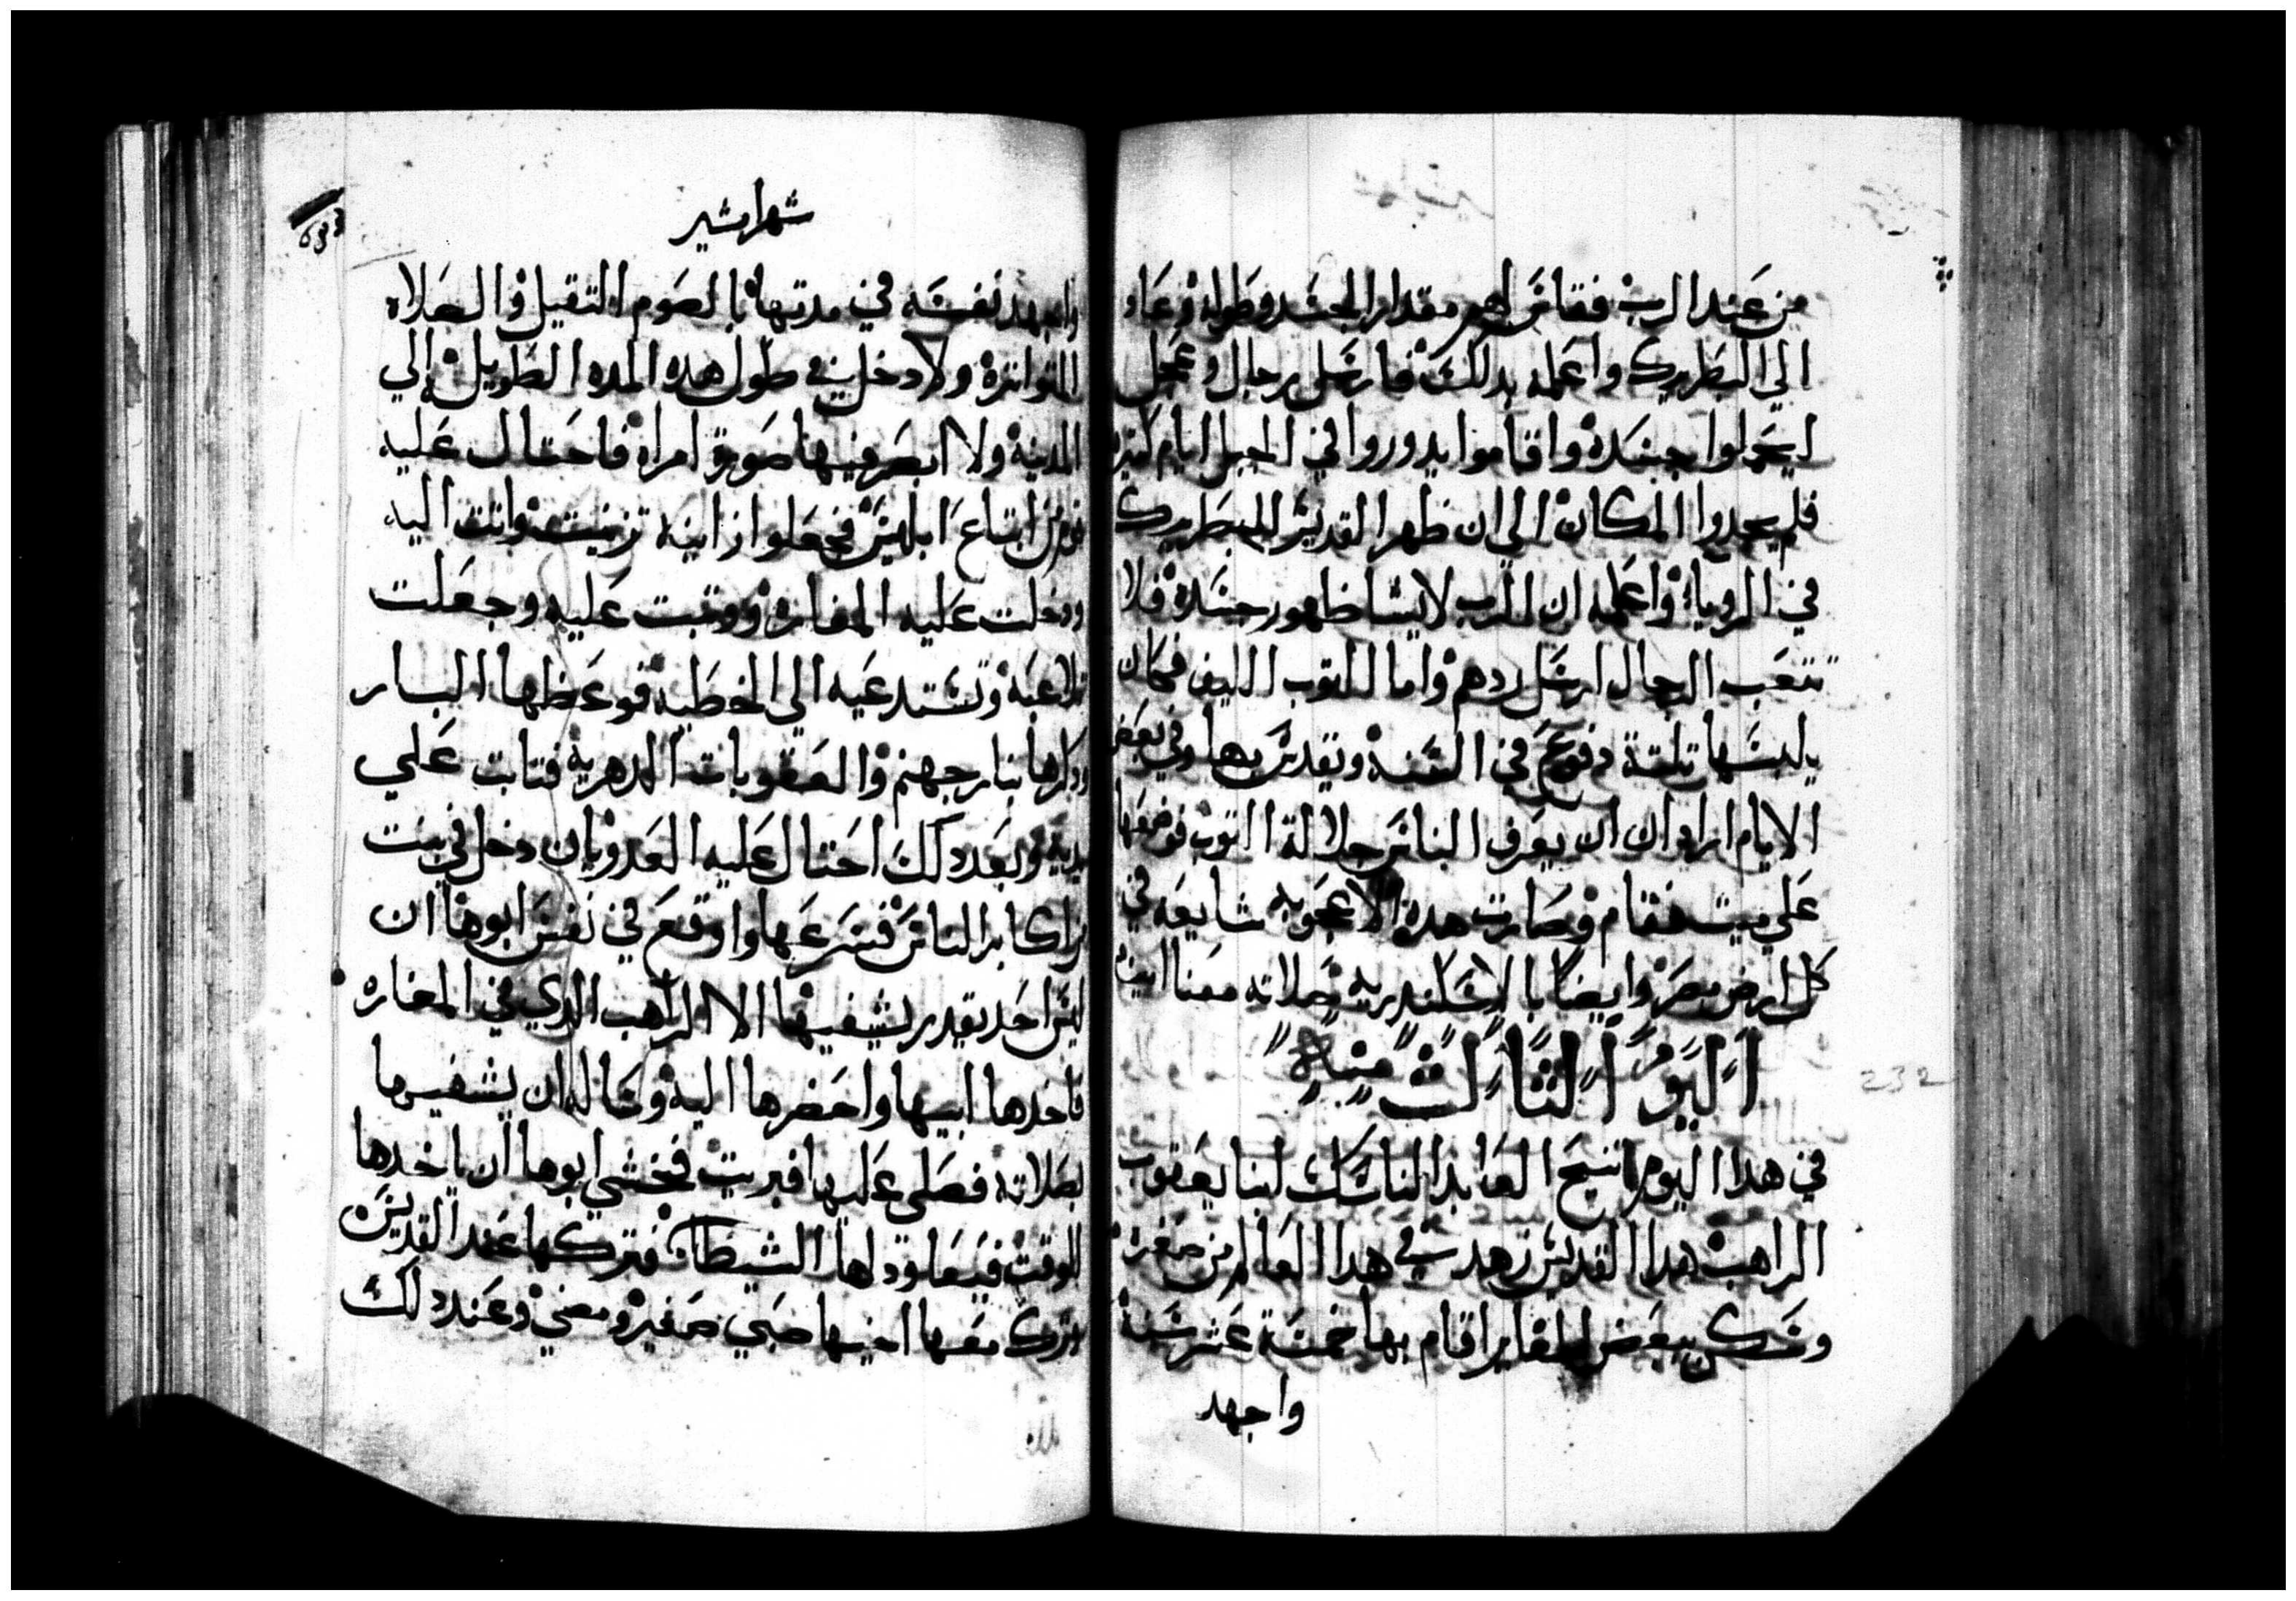 من عند الرب فقاس لهم مقدار الجسد وطوله وعاد
الي البطريرك واعلمه بدلك فارسل رجال وعجل
ليحملوا جسده واقاموا يدوروا في الجبل ايام كتيره
فلم يجدوا المكان الي ان ظهر القديس للبطريرك
في الرويا واعلمه ان الرب لا يشا ظهور جسده فلا
تتعب الرجال ارسل ردهم واما التوب الليف فكان
يلبسها تلتة دفوع في السنه ويتقدس بها وفي بعض
الايام اراد ان يعرف الناس جلالة التوب فوضعها
علي ميت فقام وصارت هده الاعجوبه شايعه في
كل ارض مصر وايضا بالاسكندريه صلاته معنا امين
اليوم الثالث منه
في هدا اليوم تنيح العابد الناسك ابنا يعقوب
الراهب هدا القديس زهد في هدا العالم من صغره
وسكن ببعض المغاير اقام بها خمسة عشر سنة
واجهد
232
شهر امشير
واجهد نفسه في مدتها بالصوم التقيل والصلاه
المتواتره ولا دخل في طول هده المده الطويله الي
المدينه ولا ابصر فيها صورة امراه فاحتال عليه
قوم من اتباع ابليس فجعلوا زانيه تزينت واتت اليه
ودخلت عليه المغاره ووتبت عليه وجعلت
تلاعبه وتستدعيه الي الخطيه فوعظها البار
ودكرها بنار جهنم والعقوبات الدهريه فتابت علي
يديه وبعد دلك احتال عليه العدو بان دخل في بنت
من اكابر الناس فصرعها واوقع في نفس ابوها ان
ليس احد يقدر يشفيها الا الراهب الدي في المغاره
فاخدها ابيها واحضرها اليه وساله ان يشفيها
بصلاته فصلي عليها فبريت فخشي ابوها ان ياخدها
للوقت فيعاود لها الشيطان فتركها عند القديس
وترك معها اخيها صبي صغير ومضي وعند دلك